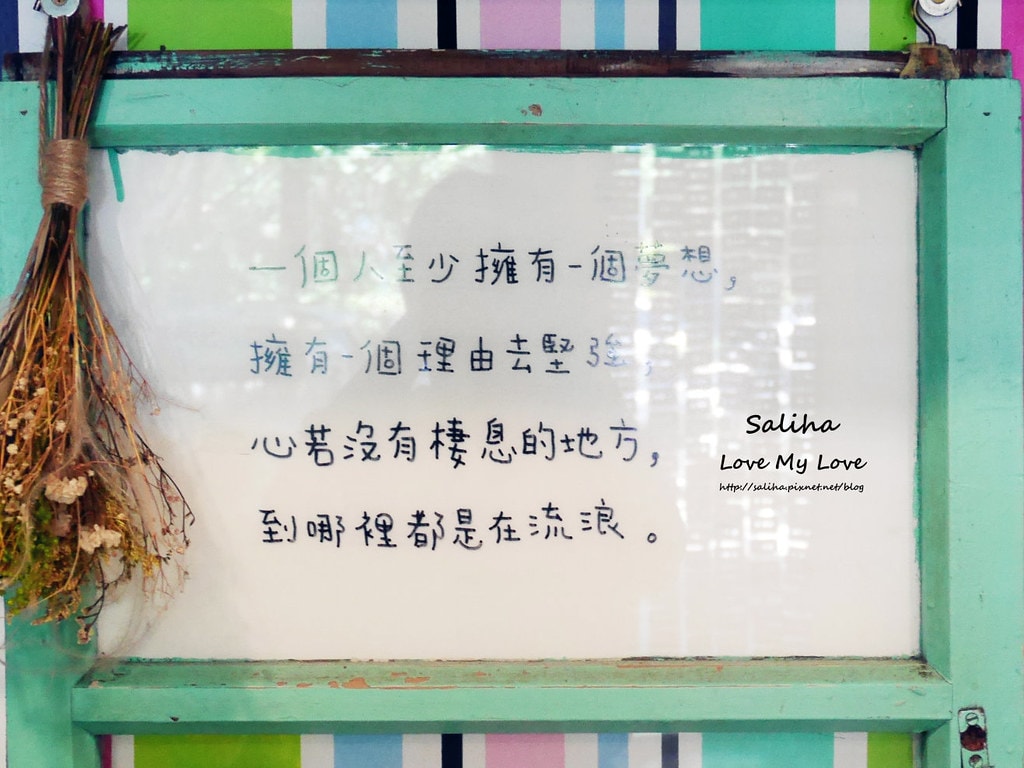 一個人至少擁有一個夢想，
擁有一個理由去堅強，
心若沒有棲息的地方，
到哪裡都是在流浪。
Saliha
Love My Love
http://saliha.pixnet.net/blog